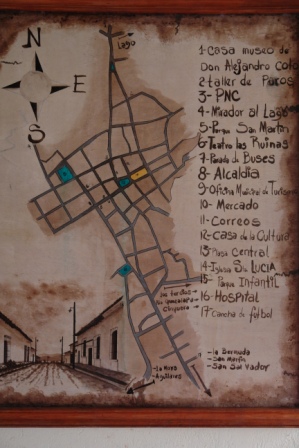 N
Lago
E
S
1-Casa museo de
Don Alejandro Coto
2-taller de Paros
3- PNC
4- Mirador al Lago
5- Parque San Martin
6- Teatro las Ruinas
7- Parada de Buses
8- Alcaldia
9- Oficina Municipal de Turismo
10- Mercado
11- Correos
12- Casa de la Cultura
13 Plaza Central
14- Iglesia Sta LUCIA
15- Parque INFANTIL
16- HOSPITAL
17 Cancha de fútbol
- la Bermuda
- San Martin
- San Salvador
- Aguilares